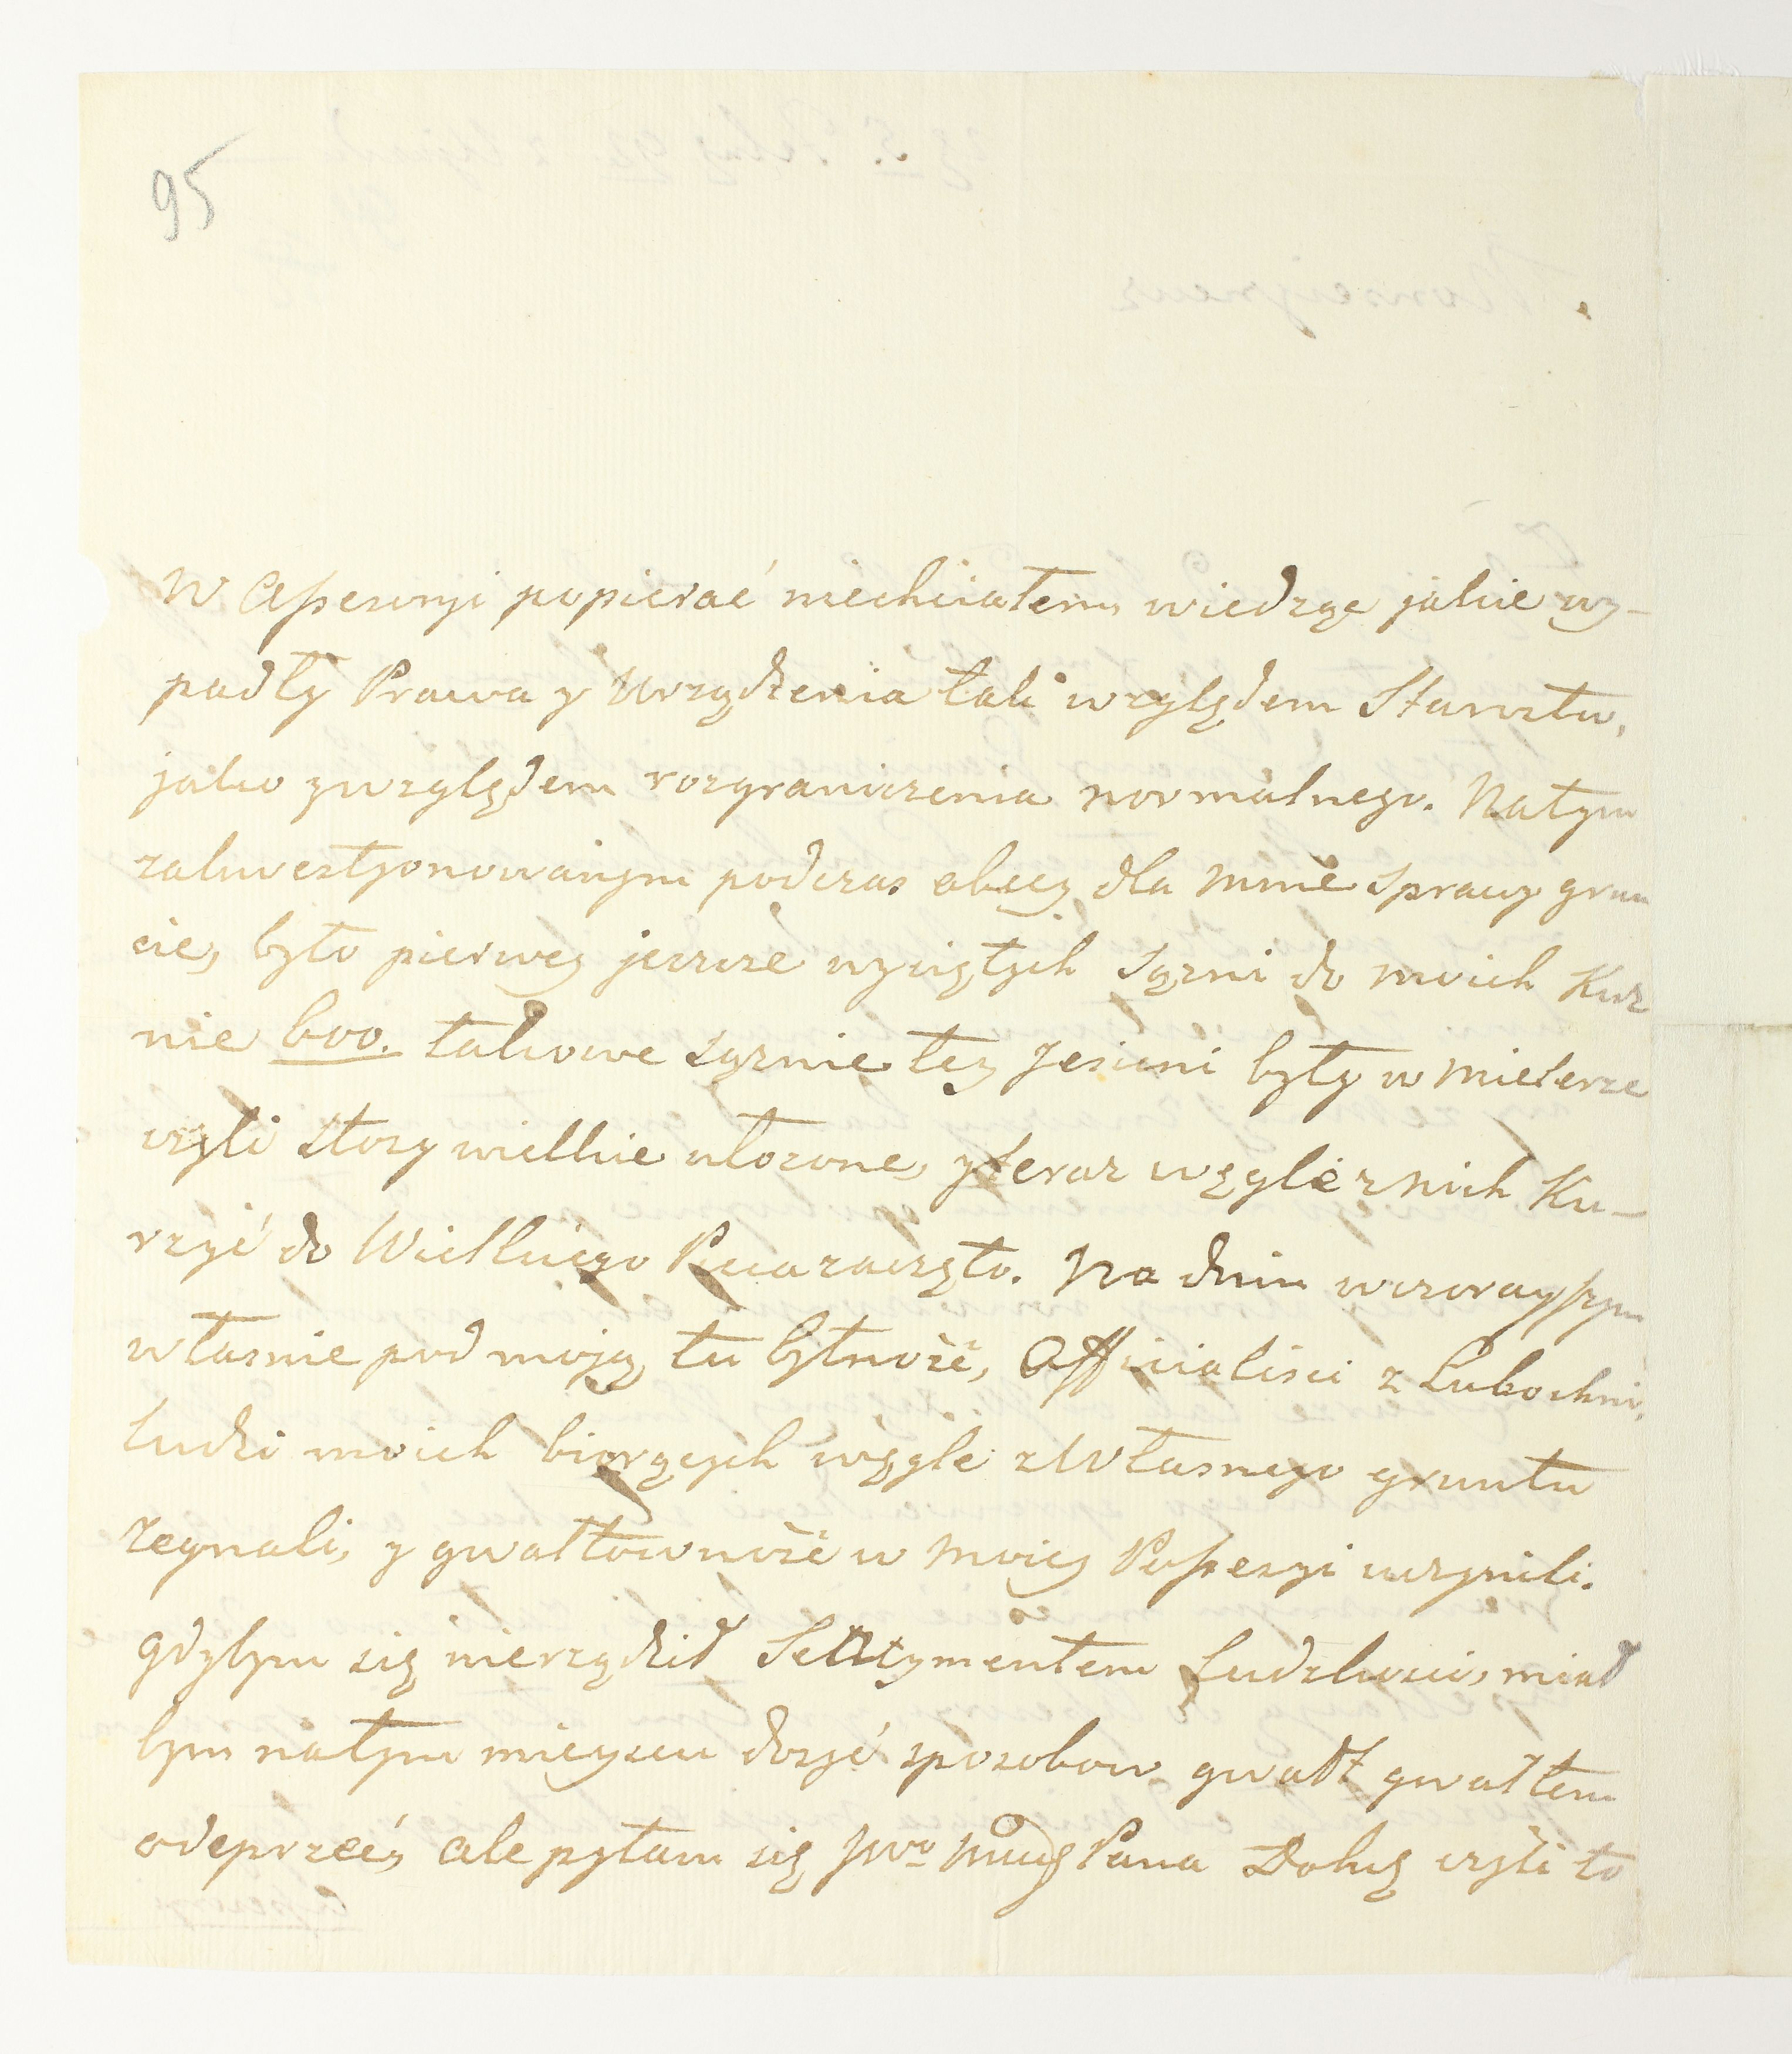 95
W Assesoryi popierać niechciałem, wiedząc jakie wy-
padły Prawa y Urządzenia tak względem Starostw,
jako y względem rozgraniczenia normalnego. Na tym
zakwestyonowanym podczas obcey dla mnie sprawy grun
cie, było pierwey jeszcze wyciętych sążni do moich Kuz
nic 600. takowe sążnie tey Jesieni były w mielerze
czyli stosy wielkie ułozone, y teraz węgle z nich Ku-
rzyć do Wielkiego Pieca zaczęto. Na dniu wczorayszym
własnie pod moją tu bytność, Officialisci z Lubochni,
ludzi moich biorących węgle z Własnego gruntu
zegnali, y gwałtowność w moiey Possesyi uczynili.
gdybym się nierządził Sentymentem Ludzkosci, miał
bym na tym mieyscu dosyć sposobow gwałt gwałtem
odeprzeć, ale pytam się Pana Dobr. czyli to